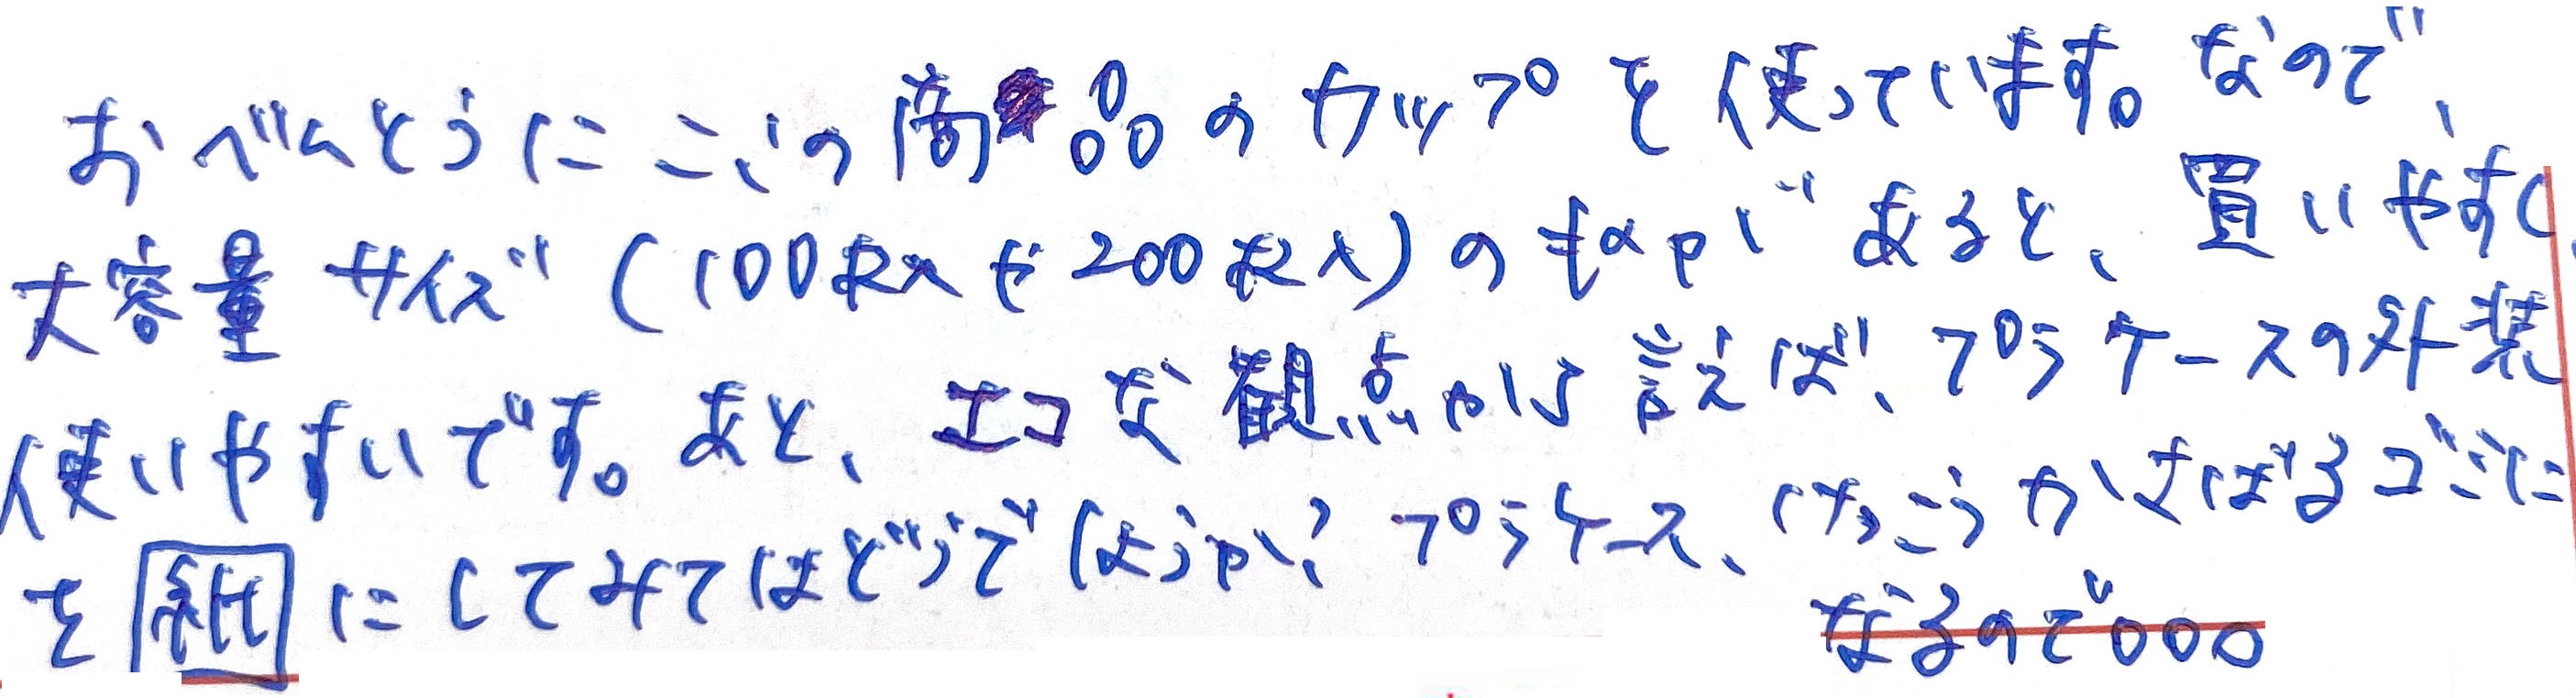 おべんとうにこの商品のカップを使っています。なので、
大容量サイズ(100枚入や200枚入)のものがあると、買いやすく、
使いやすいです。あと、エコな観点から言えば、プラケースの外装
を紙にしてみてはどうでしょうか?プラケース、けっこうかさばるゴミに
なるので。。。